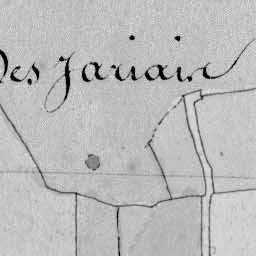 Des Jariaix